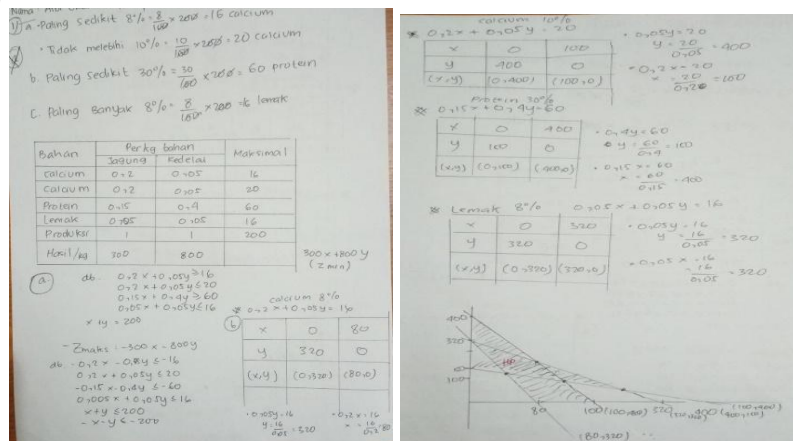 1) a. Paling sedikit 8% = 8/100 × 200 = 16 calcium
• Tidak melebihi 10% = 10/100 × 200 = 20 calcium
b. Paling sedikit 30% = 30/100 × 200 = 60 protein
C. Paling Banyak 8% = 8/100 × 200 = 16 lemak
Bahan Per kg bahan Maksimal
Jagung Kedelai
Calcium 0,2 0,05 16
Calcium 0,2 0,05 20
Protein 0,15 0,4 60
Lemak 0,05 0,05 16
Produksi 1 1 200
Hasil/kg 300 800 300x+800y
(Z min)
a. db. 0,2x+0,05y ≥ 16
0,2x+0,05y ≤ 20
0,15x+0,4y ≥ 60
0,05x+0,05y ≤ 16
x+y = 200
- Zmaks: -300x - 800y
db -0,2x -0,05y ≤ -16
0,2x+0,05y ≤ 20
-0,15x-0,4y ≤ -60
0,005x+0,05y ≤ 16
x+y ≤ 200
-x-y ≤ -200
b. calcium 8%
* 0,2x+0,05y = 16
x 0 80
y 320 0
(x,y) (0,320) (80,0)
• 0,05y = 16
y = 16/0,05 = 320
• 0,2x = 16
x = 16/0,2 = 80
calcium 10%
* 0,2x + 0,05y = 20
x 0 100
y 400 0
(x,y) (0,400) (100,0)
• 0,05y = 20
y = 20/0,05 = 400
• 0,2x = 20
x = 20/0,2 = 100
Protein 30%
* 0,15x + 0,4y = 60
x 0 400
y 100 0
(x,y) (0,100) (400,0)
• 0,4y = 60
y = 60/0,4 = 100
• 0,15x = 60
x = 60/0,15 = 400
* Lemak 8% 0,05x + 0,05y = 16
x 0 320
y 320 0
(x,y) (0,320) (320,0)
• 0,05y = 16
y = 16/0,05 = 320
• 0,05x = 16
= 16/0,05 = 320
400
320
100
80 100 (100,400) 320 400
(80,320)